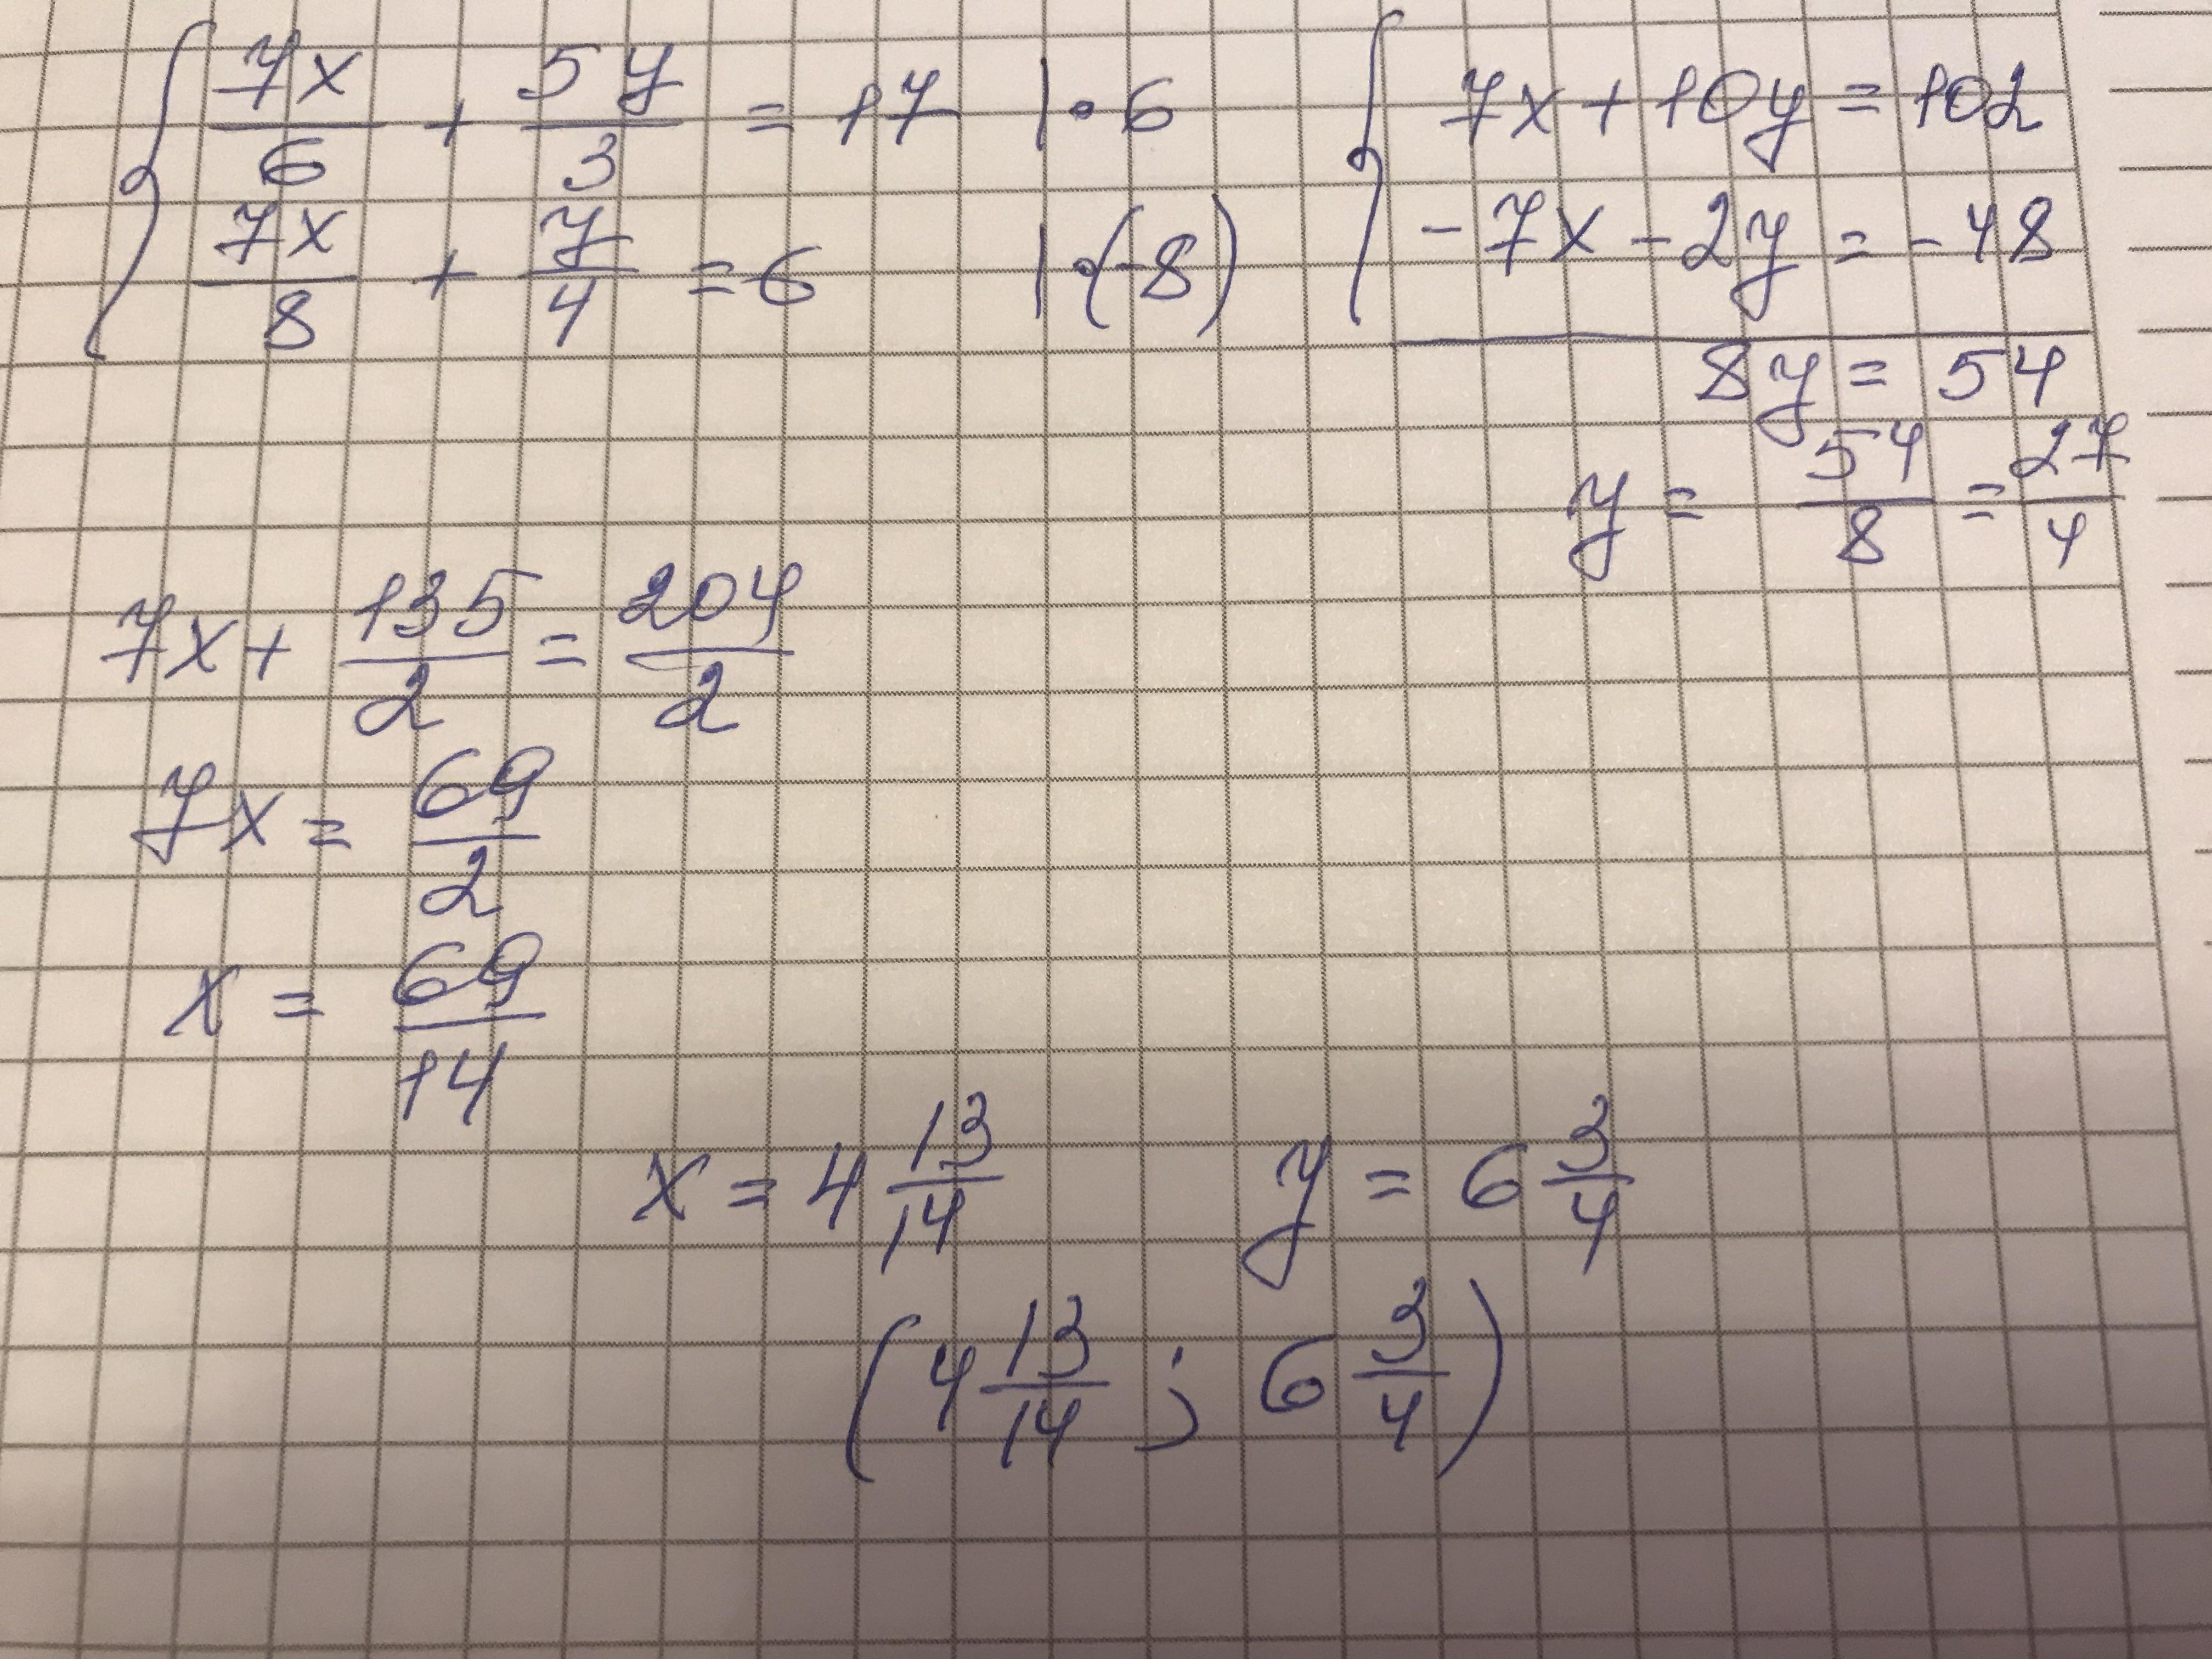 { 7x/6 + 5y/3 = 17 | · 6
7x/8 + y/4 = 6 | · (-8)
{ 7x + 10y = 102
-7x - 2y = -48
8y = 54
y = 54/8 = 27/4
7x + 135/2 = 204/2
7x = 69/2
x = 69/14
x = 4 13/14 y = 6 3/4
(4 13/14 ; 6 3/4)